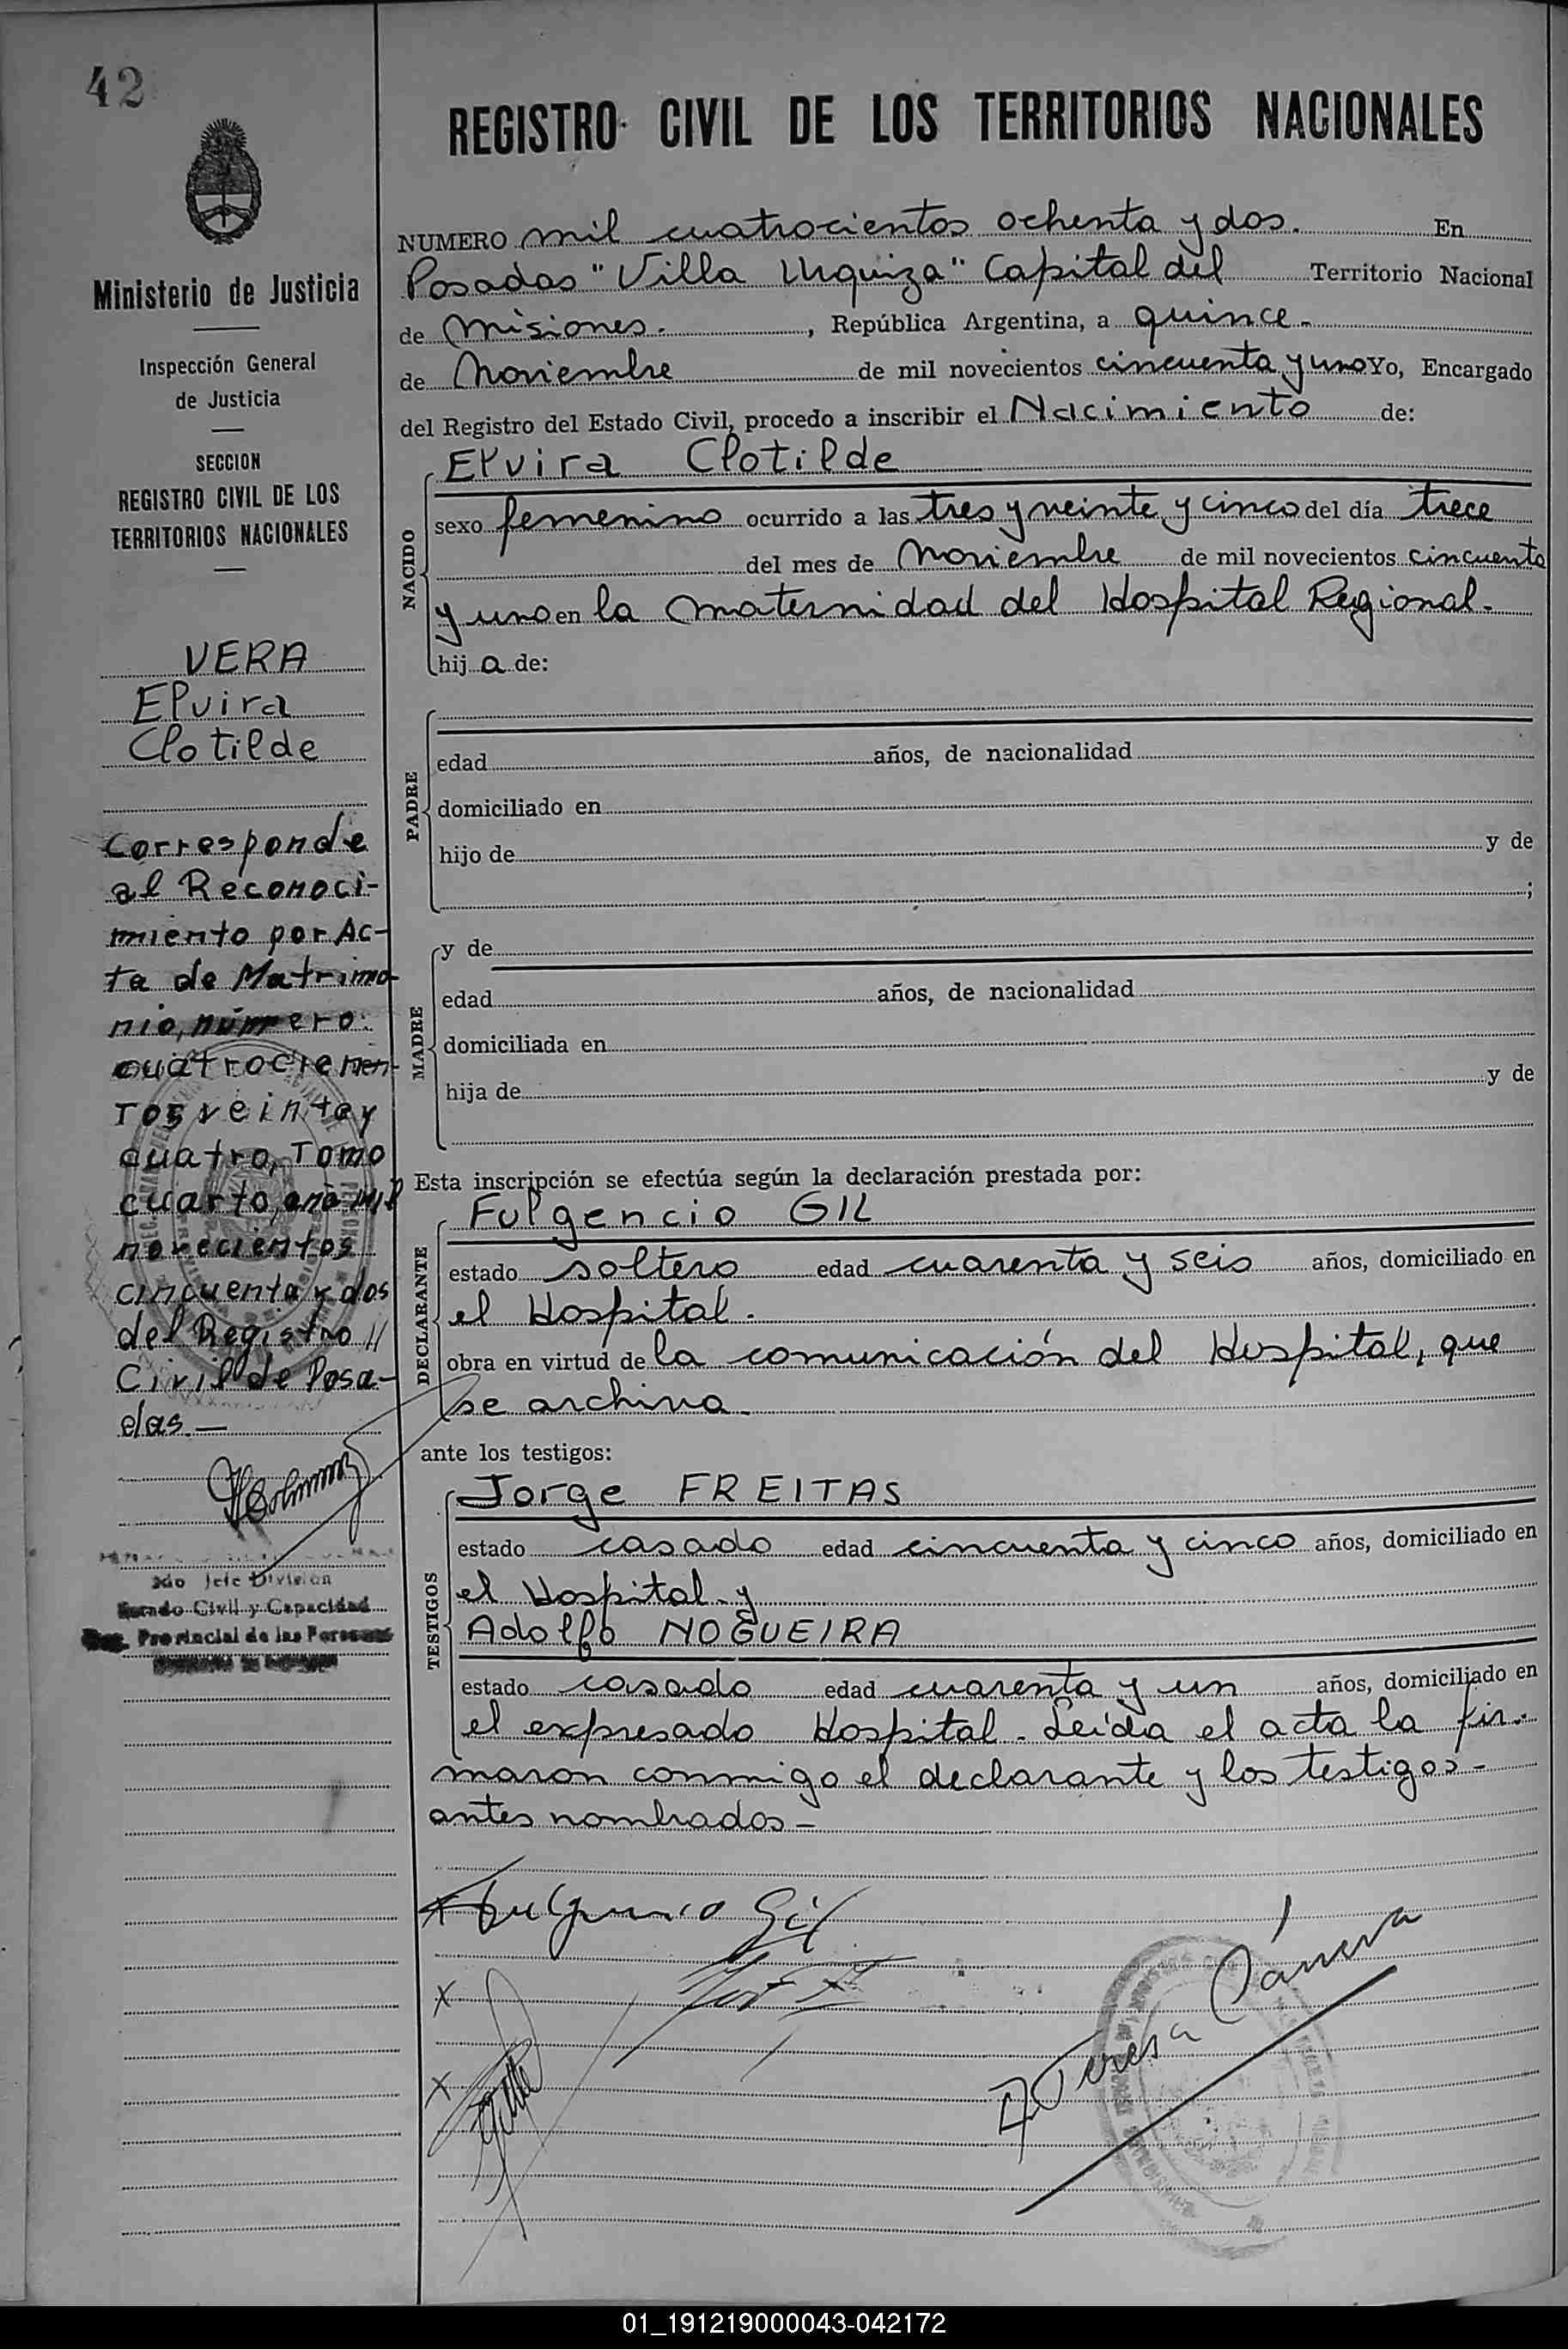 42
REGISTRO CIVIL DE LOS TERRITORIOS NACIONALES
Ministerio de Justicia
Inspección General
de Justicia
SECCION
REGISTRO CIVIL DE LOS
TERRITORIOS NACIONALES
VERA
Elvira
Clotilde
Corresponde
al Reconoci-
miento por Ac-
ta de Matrimo
nio, número
cuatrocienen-
tos veinte y
cuatro, Tomo
cuarto, año mil
novecientos
cincuenta y dos
del Registro //
Civil de Posa-
das.—
Jefe Division
Estado Civil y Capacidad
Provincial de las Personas
NUMERO mil cuatrocientos ochenta y dos. En
Posadas "Villa Urquiza" Capital del Territorio Nacional
de Misiones. , República Argentina, a quince.
de Noviembre de mil novecientos cincuenta y uno Yo, Encargado
del Registro del Estado Civil, procedo a inscribir el Nacimiento de:
NACIDO
Elvira Clotilde
sexo femenino ocurrido a las tres y veinte y cinco del día trece
del mes de Noviembre de mil novecientos cincuenta
y uno en la Maternidad del Hospital Regional.
hij a de:
PADRE
edad años, de nacionalidad
domiciliado en
hijo de y de
;
MADRE
y de
edad años, de nacionalidad
domiciliada en
hija de y de
Esta inscripción se efectúa según la declaración prestada por:
DECLARANTE
Fulgencio GIL
estado soltero edad cuarenta y seis años, domiciliado en
el Hospital.
obra en virtud de la comunicación del Hospital, que
se archiva.
ante los testigos:
TESTIGOS
Jorge FREITAS
estado casado edad cincuenta y cinco años, domiciliado en
el Hospital y
Adolfo NOGUEIRA
estado casado edad cuarenta y un años, domiciliado en
el expresado Hospital. Leída el acta la fir-
maron conmigo el declarante y los testigos
antes nombrados-
Fulgencio Gil
x
x
01_191219000043-042172